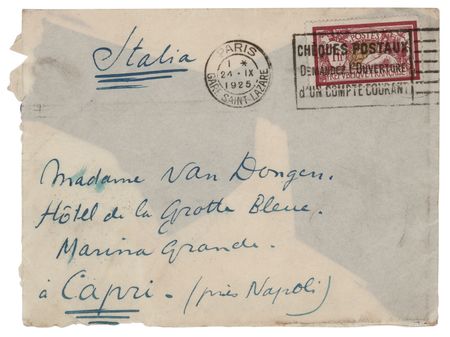 Italia
PARIS
1 *
24 - IX
1925
GARE SAINT-LAZARE
CHÈQUES POSTAUX
DEMANDEZ L'OUVERTURE
d'UN COMPTE COURANT
Madame Van Dongen.
Hôtel de la Grotte Bleue.
Marina Grande.
à Capri - (près Napoli)